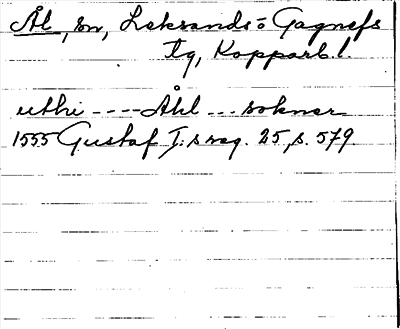 Ål, sn, Leksands o Gagnefs
tg, Kopparb. l.
uthi ---- Åhl --- sokner
1555 Gustaf I:s reg. 25, s. 579.